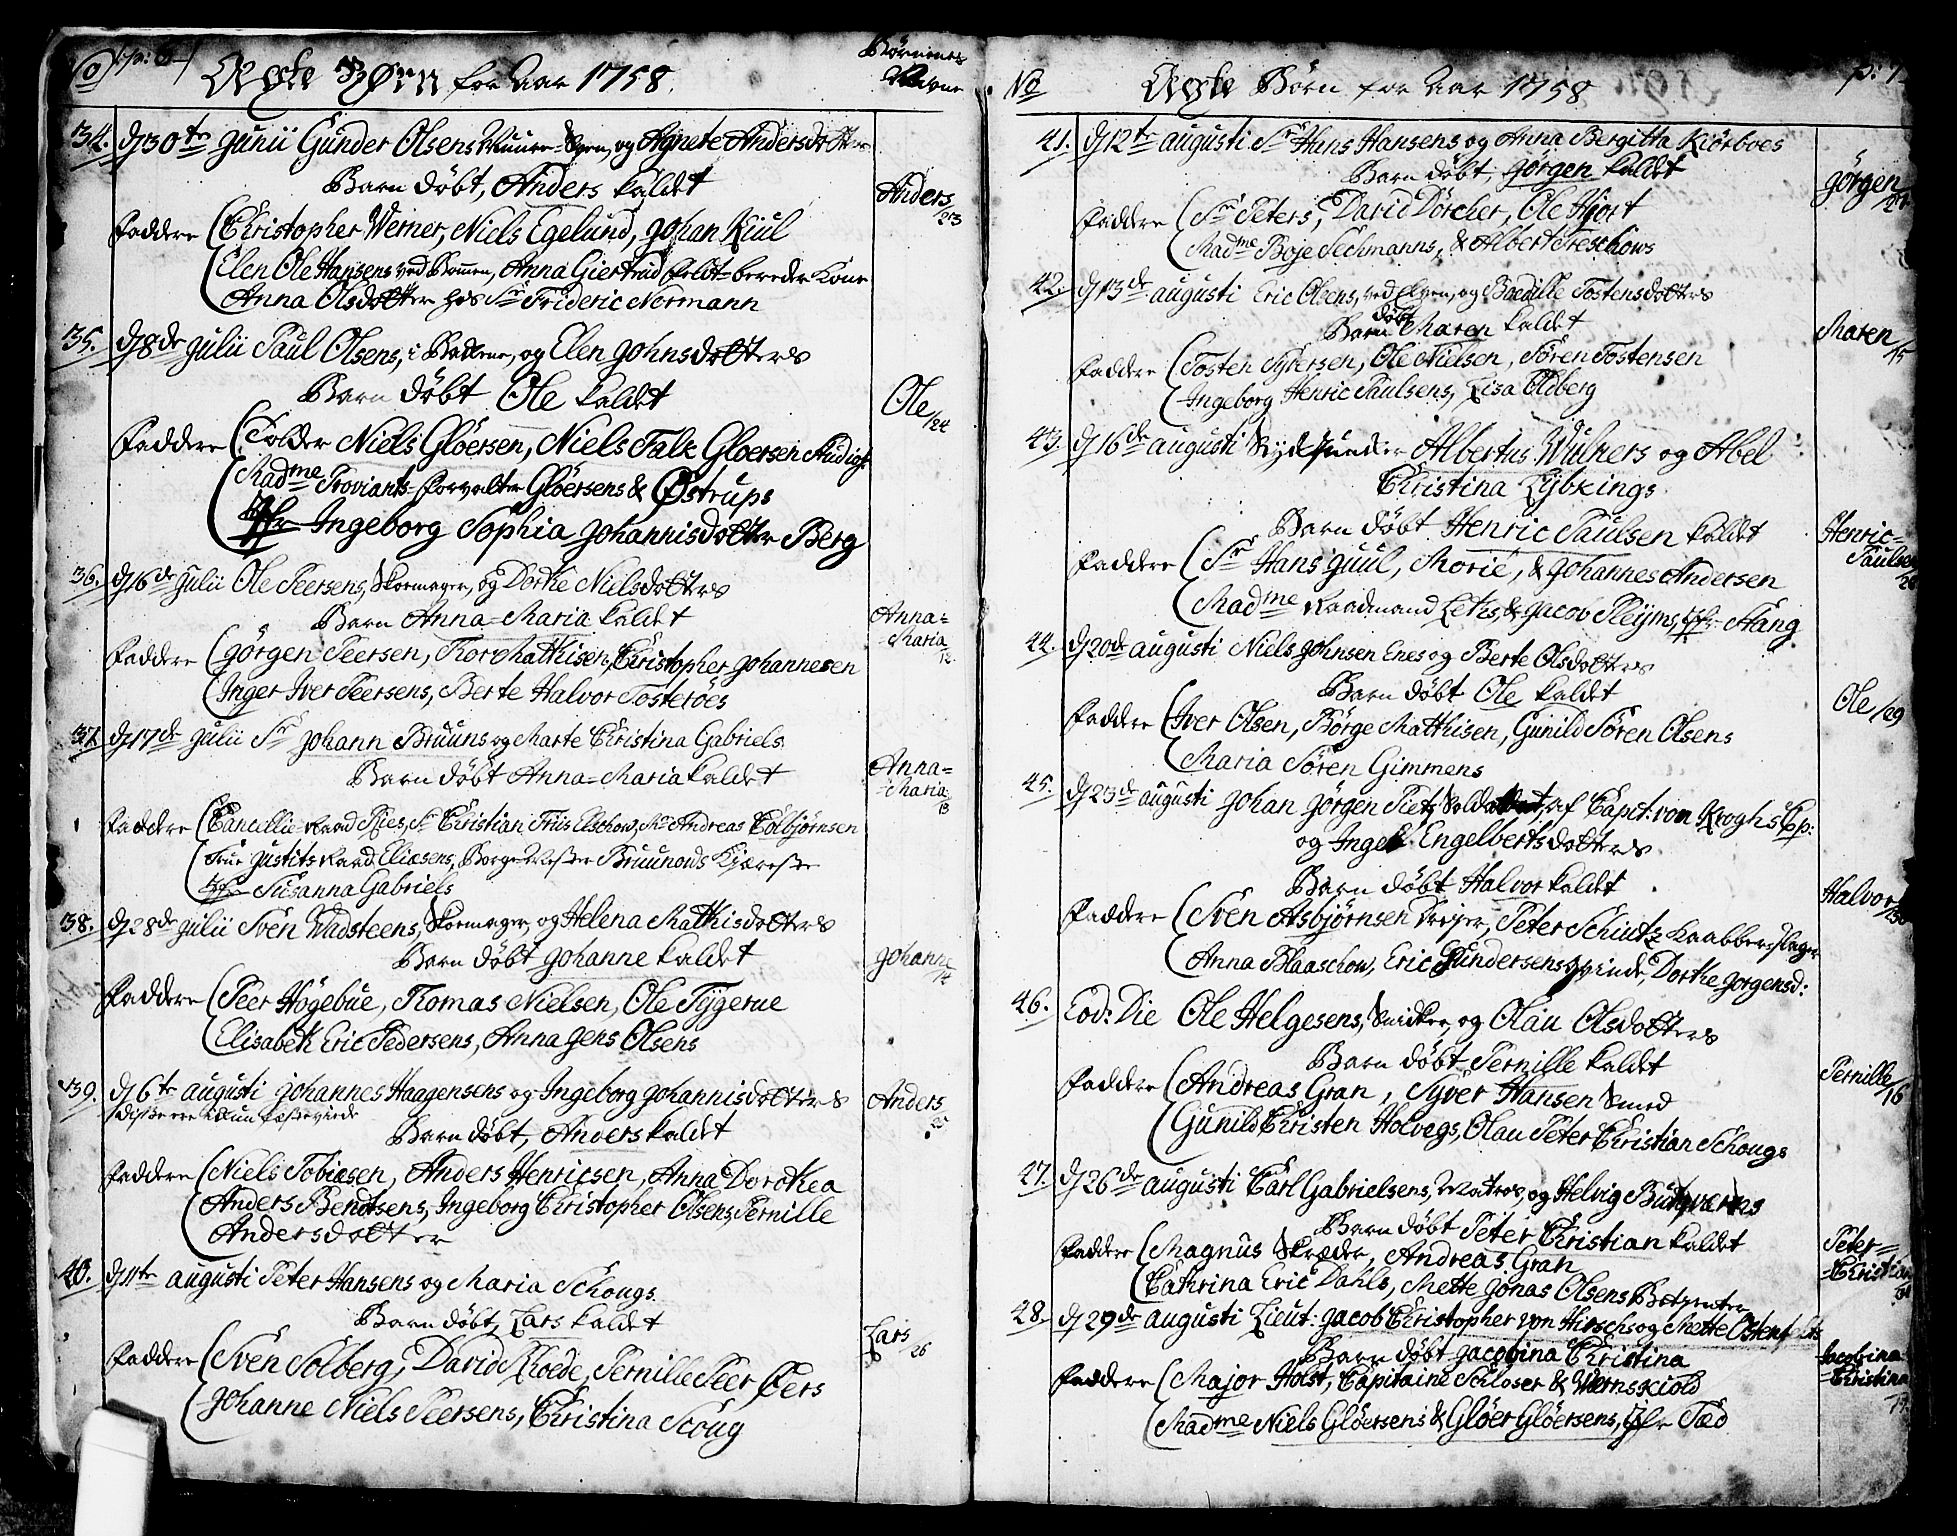 No p: 6
Ægte Børn for Aar 1758.
Børnenes
Navne
34. d 30te Junii Gunder Olsens Muure-Svend, og Agnete Andersdotter
Barn döbt, Anders kaldet
Anders
/23
Faddere Christopher Werner, Niels Egelund, Johan Kiul
Elen Ole Hansens ved Bommen, Anna Giertrud Feldt-bereder Kone
Anna Olsdotter hos Sr Frideric Normann
35. d 8de Julii Paul Olsens, i Bakkene, og Elen Johnsdotters
Barn döbt Ole kaldet
Ole /24
Faddere Tolder Niels Glöersen, Niels Falk Gloersen Studios:
Madme Proviants-forvalter Glöersens & Østrups
Jfr Ingeborg Sophia Johannisdotter Berg
36. d 16de Julii Ole Peersens, Skomager, og Dorthe Nielsdotters
Barn Anna-Maria kaldet
Anna=
-Maria
12
Faddere Görgen Peersen, Thor Mathisen, Christopher Johannesen
Inger Iver Peersens, Berte Halvor Tosteröes
37. d 17de Julii Sr Johann Bruuns og Marte Christina Gabriels
Barn döbt Anna=Maria kaldet
Anna=
-Maria
13
Faddere Cancellie Raad Ries, Sr Christian Friis Elschow, Mr Andreas Colbjørnsen
Frue Justits Raad Eliesens, Borge-Mester Bruunonds Kjæreste
Jfr Susanna Gabriels
38. d 28de Julii Sven Wadsteens, Skomager, og Helena Mathisdotters
Barn döbt Johanne kaldet
Johanne
/14
Faddere Peer Högebue, Thomas Nielsen, Ole Tygerue
Elisabeth Eric Pedersens, Anna Jens Olsens
39. d 6te augusti Johannes Haagensens og Ingeborg Johannisdotters
Barn döbt, Anders kaldet
Anders
25
Faddere Niels Tobiesen, Anders Henricsen, Anna Dorothea
Anders Bendtsens, Ingeborg Christopher Olsens, Pernille
Andersdotter
40. d 11te augusti Peter Hansens og Maria Schougs
Barn döbt, Lars kaldet
Lars
/26
Faddere Sven Solberg, David Rhode, Pernille Peer Pers
Johanne Niels Peersens, Christina Scoug
No Ægte Børn for Aar 1758 p: 7
41. d 12te augusti Sr Hans Hansens og Anna Bergitta Kiörboes
Barn döbt, Görgen kaldet
Görgen
/27
Faddere Sr Peters, David Dörcher, Ole Hjort
Madme Boje Techmanns, & Albert Treschows
42. d 13de augusti Eric Olsens, ved Elven, og Boedille Tostensdotters
Barn döbt Maren kaldet
Maren
/15
Faddere Tosten Syversen, Ole Nielsen, Sören Tostensen
Ingeborg Henric Paulsens, Lisa Oldberg
43. d 16de augusti Albertus Wulners og Abel
Christina Lybkings
Barn döbt Henric Paulsen kaldet
Henric=
Paulsen
/28
Faddere Sr Hans Juul, Morié, & Johannes Andersen
Madme Raadmand Leths, & Jacob Pleyms, Jfr Stang
44. d 20de augusti Niels Johnsen Enes og Berte Olsdotters
Barn döbt Ole kaldet
Ole /29
Faddere Iver Olsen, Börge Mathisen, Gunild Sören Olsens
Maria Sören Gimmens
45. d 23de augusti Johan Görgen Pietz, Soldat, af Capit: von Kroghs Cp:
og Inge Engelbertsdotters
Barn döbt Halvor kaldet
Halvor
/30
Faddere Sven Asbjørnsen Dreyer, Peter Schiutz Kaabberslager
Anna Blaaschow, Eric Gundersens Qvinde, Dorthe Jorgensd:
46. Eod: Die Ole Helgesens, Snidker, og Olau Olsdotters
Barn döbt Pernille kaldet
Pernille
/16
Faddere Andreas Gran, Syver Hansen Smed
Gunild Christen Holvegs, Olau Peter Christian Schougs
47. d 26de augusti Carl Gabrielsens, Matros, og Helvig
Barn döbt Peter Christian kaldet
Peter=
-Christian
31
Faddere Magnus Skræder, Andreas Gran
Cathrina Eric Dahls, Mette Jonas Olsens
48. d 29de augusti Lieut: Jacob Christopher von Hirschs og Mette Ostenfelts
Barn döbt Jacobina Christina
Jacobina
Christina
17
Faddere Major Holst, Capitaine Schloser & Wernskiold
Madme Niels Glöersens & Glöer Glöersens, Jfr Tæd